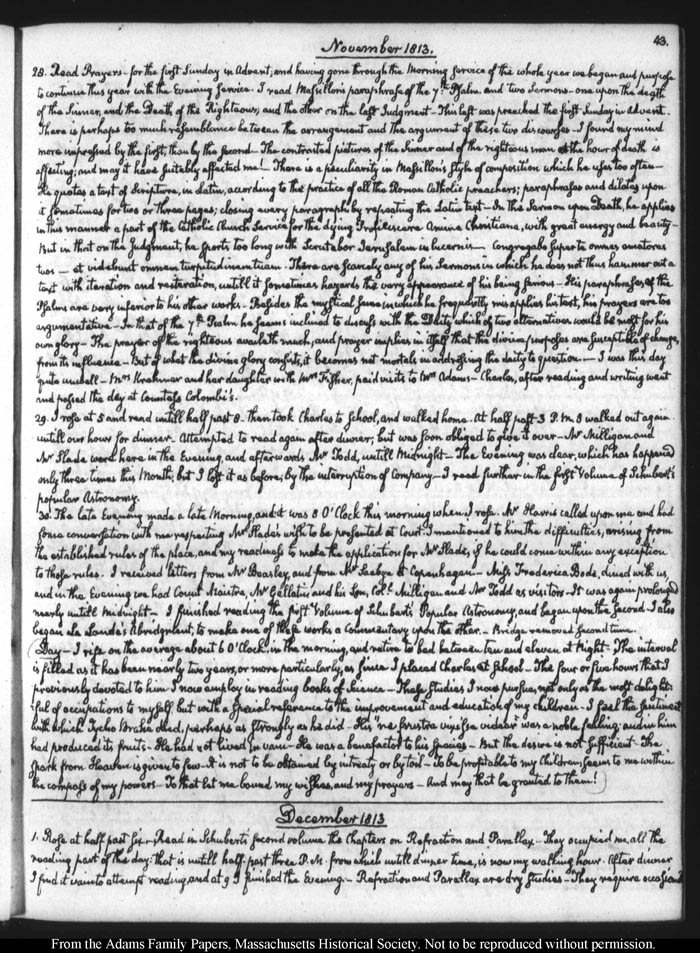 43.
November 1813.
28. Read Prayers - for the first Sunday in Advent; and having gone through the Morning service of the whole year we began and purpose
to continue this year with the Evening Service. I read Massillon's paraphrase of the 7th. Psalm. and two Sermons - one upon the death
of the Sinner, and the Death of the Righteous; and the other on the last Judgment - This last was preached the first Sunday in advent.
There is perhaps too much resemblance between the arrangement and the argument of these two discourses - I found my mind
more impressed by the first, than by the second - The contrasted pictures of the sinner and of the righteous man at the hour of death is
affecting; and may it have suitably affected me! - There is a peculiarity in Massillon's style of composition which he uses too often -
He quotes a text of Scripture, in Latin, according to the practice of all the Roman Catholic preachers; paraphrases and dilates upon
it sometimes for two or three pages; closing every paragraph by repeating the Latin text - In the Sermon upon Death, he applies
in this manner a part of the Catholic Church Service for the dying Proficiscere Anima Christiana, with great energy and beauty -
But in that on the Judgment, he sports too long with Scrutabor Jerusalem in lucernis - Congregabo super te omnes amatores
tuos - et videbunt omnem turpitudinem tuam - There are scarcely any of his Sermons in which he does not thus hammer out a
text with iteration and reiteration, untill it sometimes hazards the very appearance of his being serious - His paraphrases of the
Psalms are very inferior to his other works - Besides the mystical sense in which he frequently misapplies his text, his prayers are too
argumentative - In that of the 7th. Psalm he seems inclined to discuss with the Deity which of two alternatives would be most for his
own glory - The prayer of the righteous availeth much; and prayer implies in itself that the divine purposes are susceptible of change,
from its influence - But of what the divine glory consists, it becomes not mortals in addressing the deity to question - I was this day
quite unwell - Mrs Krehmer and her daughter with Mrs Fisher, paid visits to Mrs Adams - Charles, after reading and writing went
and passed the day at Countess Colombi's.
29. I rose at 5 and read untill half past 8 - then took Charles to School, and walked home. At half past 3 P.M. I walked out again
untill our hour for dinner - Attempted to read again after dinner; but was soon obliged to give it over - Mr Milligan and
Mr Slade were here in the Evening, and afterwards Mr Todd, untill Midnight - The Evening was clear, which has happened
only three times this Month; but I lost it as before, by the interruption of Company - I read further in the first Volume of Schubert's
popular Astronomy.
30. The late Evening made a late Morning, and it was 8 O'Clock this morning when I rose. Mr Harris called upon me and had
some conversation with me respecting Mr Slade's wish to be presented at Court. I mentioned to him the difficulties, arising from
the established rules of the place, and my readiness to make the application for Mr Slade, if he could come within any exception
to those rules. I received letters from Mr Beasley, and from Mr Saabye at Copenhagen - Miss Frederica Bode, dined with us,
and in the Evening we had Count Maistre, Mr Gallatin and his Son, Coll. Milligan and Mr Todd as visitors - It was again prolonged
nearly untill Midnight - I finished reading the first Volume of Schubert's Popular Astronomy, and began upon the second - I also
began de Lande's Abridgment, to make one of these works a Commentary upon the other. - Bridge removed second time.
(Day - I rise on the average about 6 O'Clock, in the morning, and retire to bed between ten and eleven at Night - The interval
is filled as it has been nearly two years, or more particularly, as since I placed Charles at School - The four or five hours that I
previously devoted to him I now employ in reading books of Science - These studies I now pursue, not only as the most delight-
ful of occupations to myself, but with a special reference to the improvement and education of my children - I feel the sentiment
with which Tycho Brahe died, perhaps as strongly as he did - His "ne frustra vixisse videar" was a noble feeling; and in him
had produced its fruits - He had not lived in vain - He was a benefactor to his species - But the desire is not sufficient - The
spark from Heaven is given to few - It is not to be obtained by intreaty or by toil - To be profitable to my Children, seems to me within
the compass of my powers - To that let me bound my wishes, and my prayers - And may that be granted to them!)
December 1813
1. Rose at half past six - Read in Schubert's second volume the Chapters on Refraction and Parallax - They occupied me all the
reading part of the day: that is untill half past three P.M. from which untill dinner time, is now my walking hour. After dinner
I find it vain to attempt reading, and at 9 I finished the Evening. - Refraction and Parallax are dry studies - They require occasional
From the Adams Family Papers, Massachusetts Historical Society. Not to be reproduced without permission.